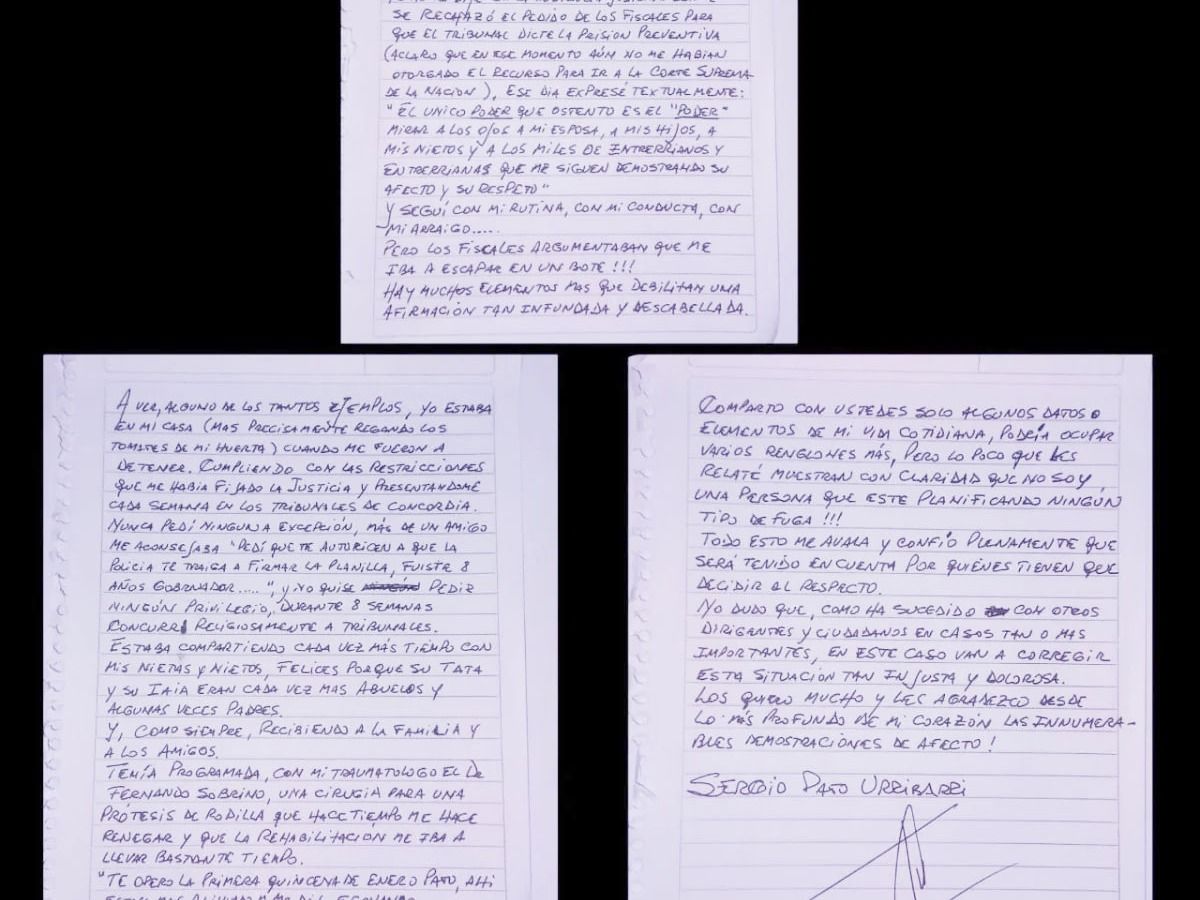 SE RECHAZÓ EL PEDIDO DE LOS FISCALES PARA
QUE EL TRIBUNAL DICTE LA PRISION PREVENTIVA
(ACLARO QUE EN ESE MOMENTO AÚN NO ME HABIAN
OTORGADO EL RECURSO PARA IR A LA CORTE SUPREMA
DE LA NACION), ESE DIA EXPRESÉ TEXTUALMENTE:
"EL UNICO PODER QUE OSTENTO ES EL "PODER"
MIRAR A LOS OJOS A MI ESPOSA, A MIS HIJOS, A
MIS NIETOS Y A LOS MILES DE ENTRERRIANOS Y
ENTRERRIANAS QUE ME SIGUEN DEMOSTRANDO SU
AFECTO Y SU RESPETO"
Y SEGUÍ CON MI RUTINA, CON MI CONDUCTA, CON
MI ARRAIGO.....
PERO LOS FISCALES ARGUMENTABAN QUE ME
IBA A ESCAPAR EN UN BOTE !!!
HAY MUCHOS ELEMENTOS MAS QUE DEBILITAN UMA
AFIRMACIÓN TAN INFUNDADA Y DESCABELLADA.
A VER, ALGUNO DE LOS TANTOS EJEMPLOS, YO ESTABA
EN MI CASA (MAS PRECISAMENTE REGANDO LOS
TOMATES DE MI HUERTA) CUANDO ME FUERON A
DETENER. CUMPLIENDO CON LAS RESTRICCIONES
QUE ME HABIA FIJADO LA JUSTICIA Y PRESENTANDOME
CADA SEMANA EN LOS TRIBUNALES DE CONCORDIA.
NUNCA PEDÍ NINGUNA EXCEPCIÓN, MÁS DE UN AMIGO
ME ACONSEJABA "PEDÍ QUE TE AUTORICEN A QUE LA
POLICIA TE TRAIGA A FIRMAR LA PLANILLA, FUISTE 8
AÑOS GOBERNADOR.....", Y NO QUISE PEDIR
NINGÚN PRIVILEGIO, DURANTE 8 SEMANAS
CONCURRI RELIGIOSAMENTE A TRIBUNALES.
ESTABA COMPARTIENDO CADA VEZ MÁS TIEMPO CON
MIS NIETAS Y NIETOS, FELICES PORQUE SU TATA
Y SU IAIA ERAN CADA VEZ MAS ABUELOS Y
ALGUNAS VECES PADRES.
Y, COMO SIEMPRE, RECIBIENDO A LA FAMILIA Y
A LOS AMIGOS.
TENÍA PROGRAMADA, CON MI TRAUMATOLOGO EL DR
FERNANDO SOBRINO, UNA CIRUGIA PARA UNA
PRÓTESIS DE RODILLA QUE HACE TIEMPO ME HACE
RENEGAR Y QUE LA REHABILITACIÓN ME IBA A
LLEVAR BASTANTE TIEMPO.
"TE OPERO LA PRIMERA QUINCENA DE ENERO PATO, AHI
COMPARTO CON USTEDES SOLO ALGUNOS DATOS O
ELEMENTOS DE MI VIDA COTIDIANA, PODRÍA OCUPAR
VARIOS RENGLONES MÁS, PERO LO POCO QUE LES
RELATÉ MUESTRAN CON CLARIDAD QUE NO SOY
UNA PERSONA QUE ESTE PLANIFICANDO NINGÚN
TIPO DE FUGA !!!
TODO ESTO ME AVALA Y CONFÍO PLENAMENTE QUE
SERÁ TENIDO EN CUENTA POR QUIÉNES TIENEN QUE
DECIDIR AL RESPECTO.
NO DUDO QUE, COMO HA SUCEDIDO CON OTROS
DIRIGENTES Y CIUDADANOS EN CASOS TAN O MAS
IMPORTANTES, EN ESTE CASO VAN A CORREGIR
ESTA SITUACIÓN TAN INJUSTA Y DOLOROSA.
LOS QUIERO MUCHO Y LES AGRADEZCO DESDE
LO MÁS PROFUNDO DE MI CORAZÓN LAS INNUMERA-
BLES DEMOSTRACIONES DE AFECTO !
SERGIO PATO URRIBARRI